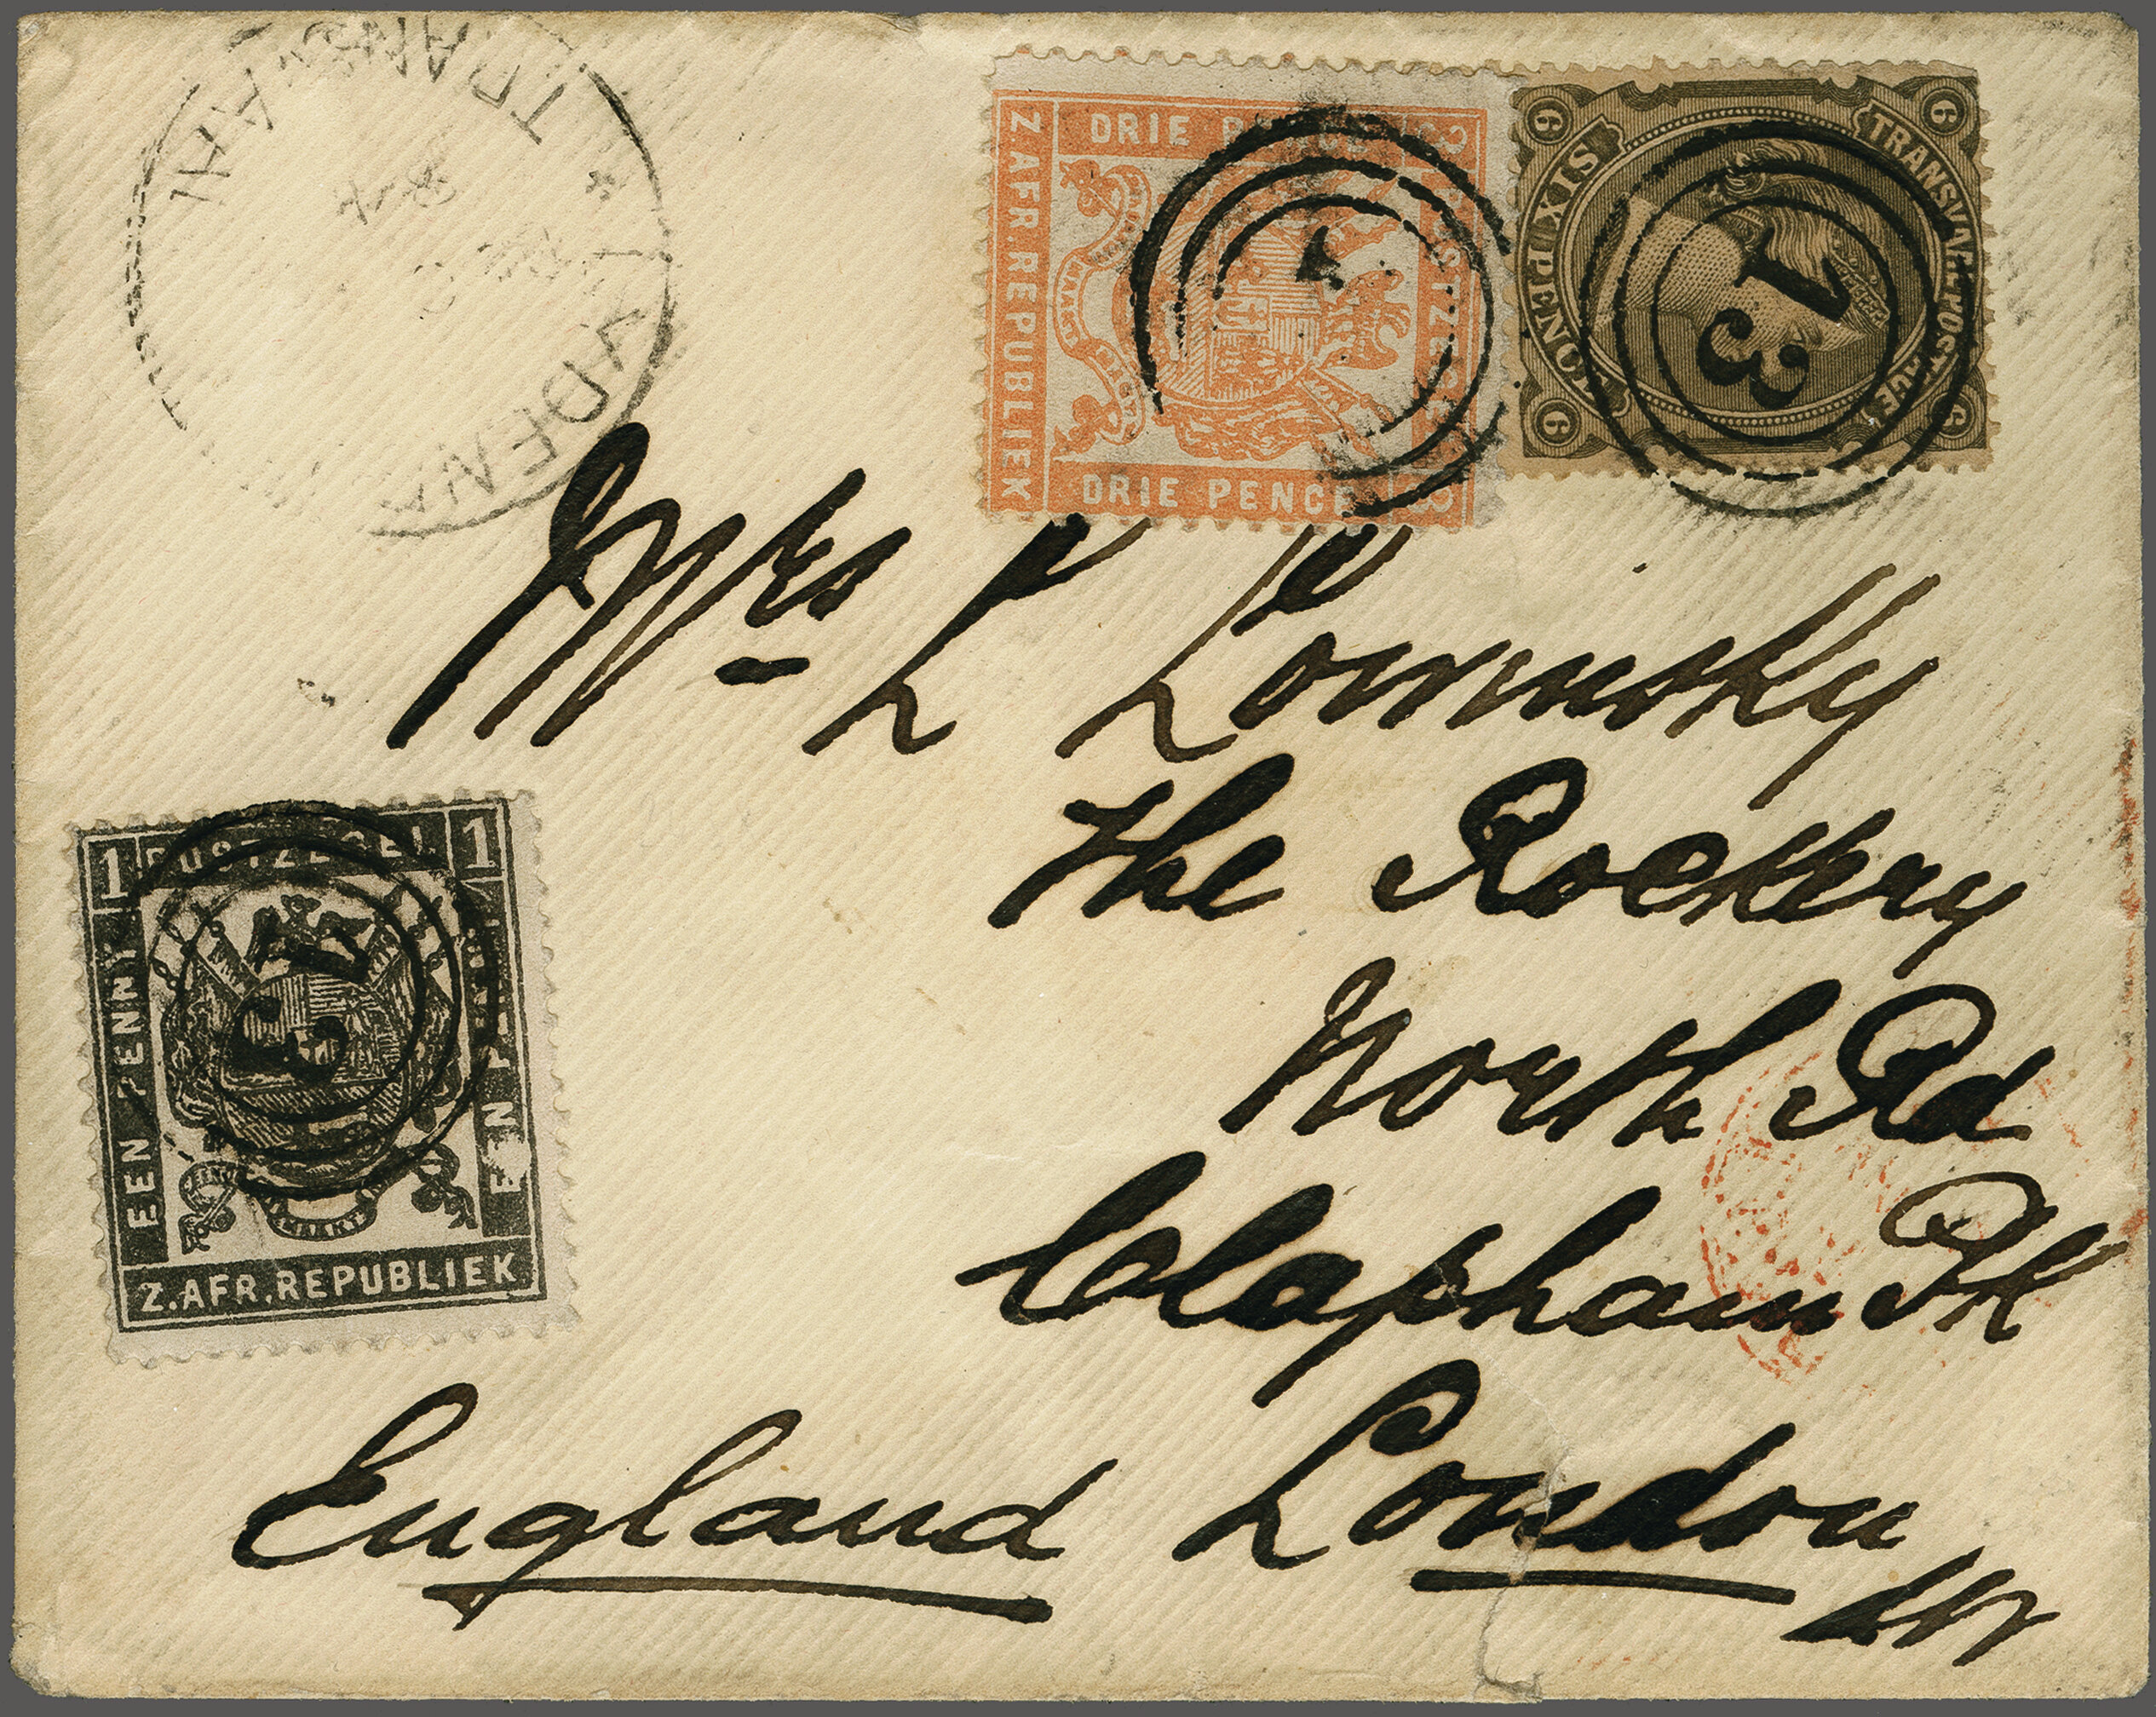 TRANSVAAL
DRIE PENCE
Z. AFR. REPUBLIEK
DRIE PENCE
3
6
6
TRANSVAAL POSTAGE
SIX PENCE
6
6
13
Mrs L
The Rockery
North Rd
Clapham Pk
London
England
1 POSTZEGEL 1
EEN PENNY
EEN PENNY
Z. AFR. REPUBLIEK